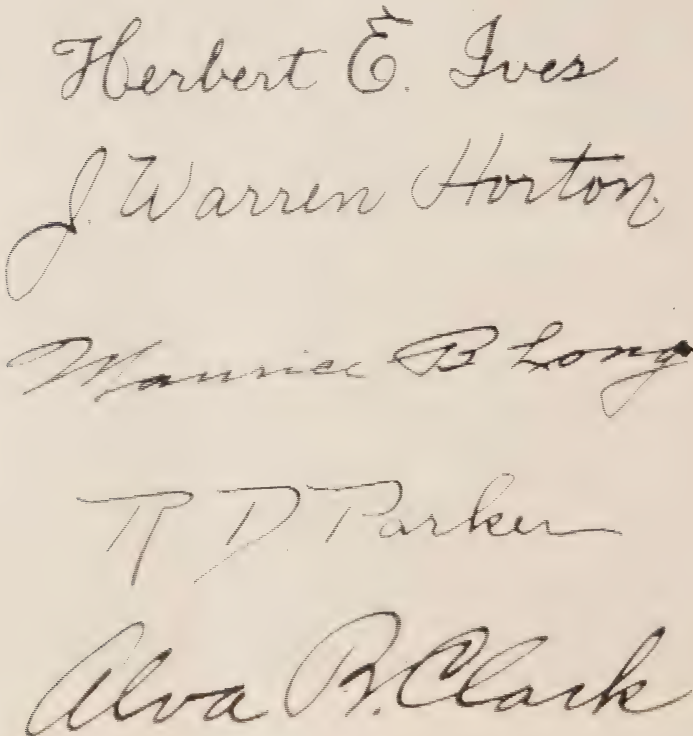 Herbert E. Ives
J. Warren Horton.
Maurice B Long
R D Parker
Alva B. Clark